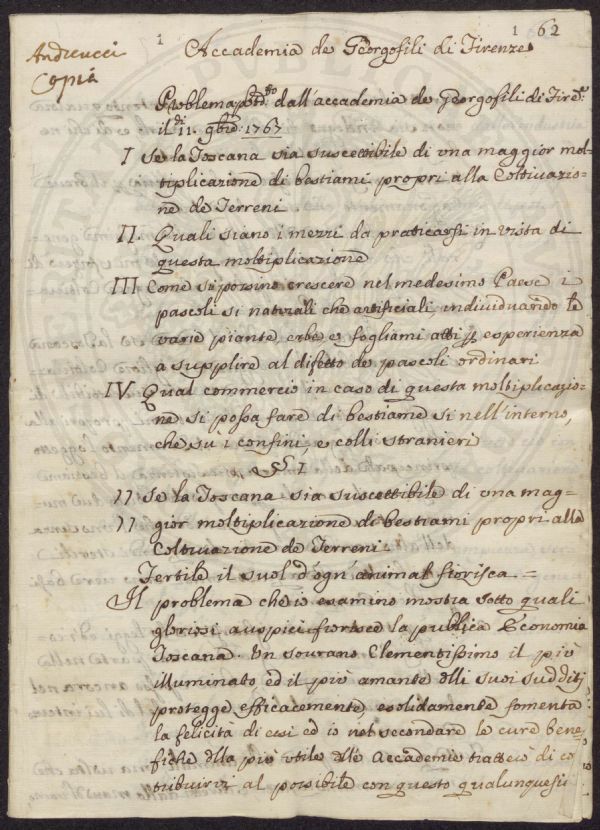 1 1 62
Andreucci
Copia
Accademia de Georgofili di Firenze
Problema dall'accademia de Georgofili di Fire.
il dì 11. 9bre 1767
I Se la Toscana sia suscettibile di una maggior mol=
tiplicazione di bestiami propri alla Coltivazio=
ne de Terreni.
II. Quali siano i mezzi da praticarsi in vista di
questa moltiplicazione
III Come si possino crescere nel medesimo Paese i
pascoli si naturali che artificiali individuando le
varie piante, erbe, e fogliami atti p esperienza
a supplire al difetto de pascoli ordinari
IV. Qual commercio in caso di questa moltiplicazio=
ne si possa fare di bestiame si nell'interno,
che su i confini, e colli stranieri
§ I
" Se la Toscana sia suscettibile di una mag=
" gior moltiplicazione di bestiami propri alla
Coltivazione de Terreni.
Fertile il suol d'ogn'animal fiorisca =
Il problema che io esamino mostra sotto quali
gloriosi auspici fiorisce la publica Economia
Toscana. Un sovrano Clementissimo il più
illuminato ed il più amante dli suoi sudditi
protegge efficacemente, e solidamente fomenta
la felicità di essi ed io nel secondare le cure bene=
fiche dlla più utile dlle Accademie tratterò di co
tribuirvi al possibile con questo qualunquesia